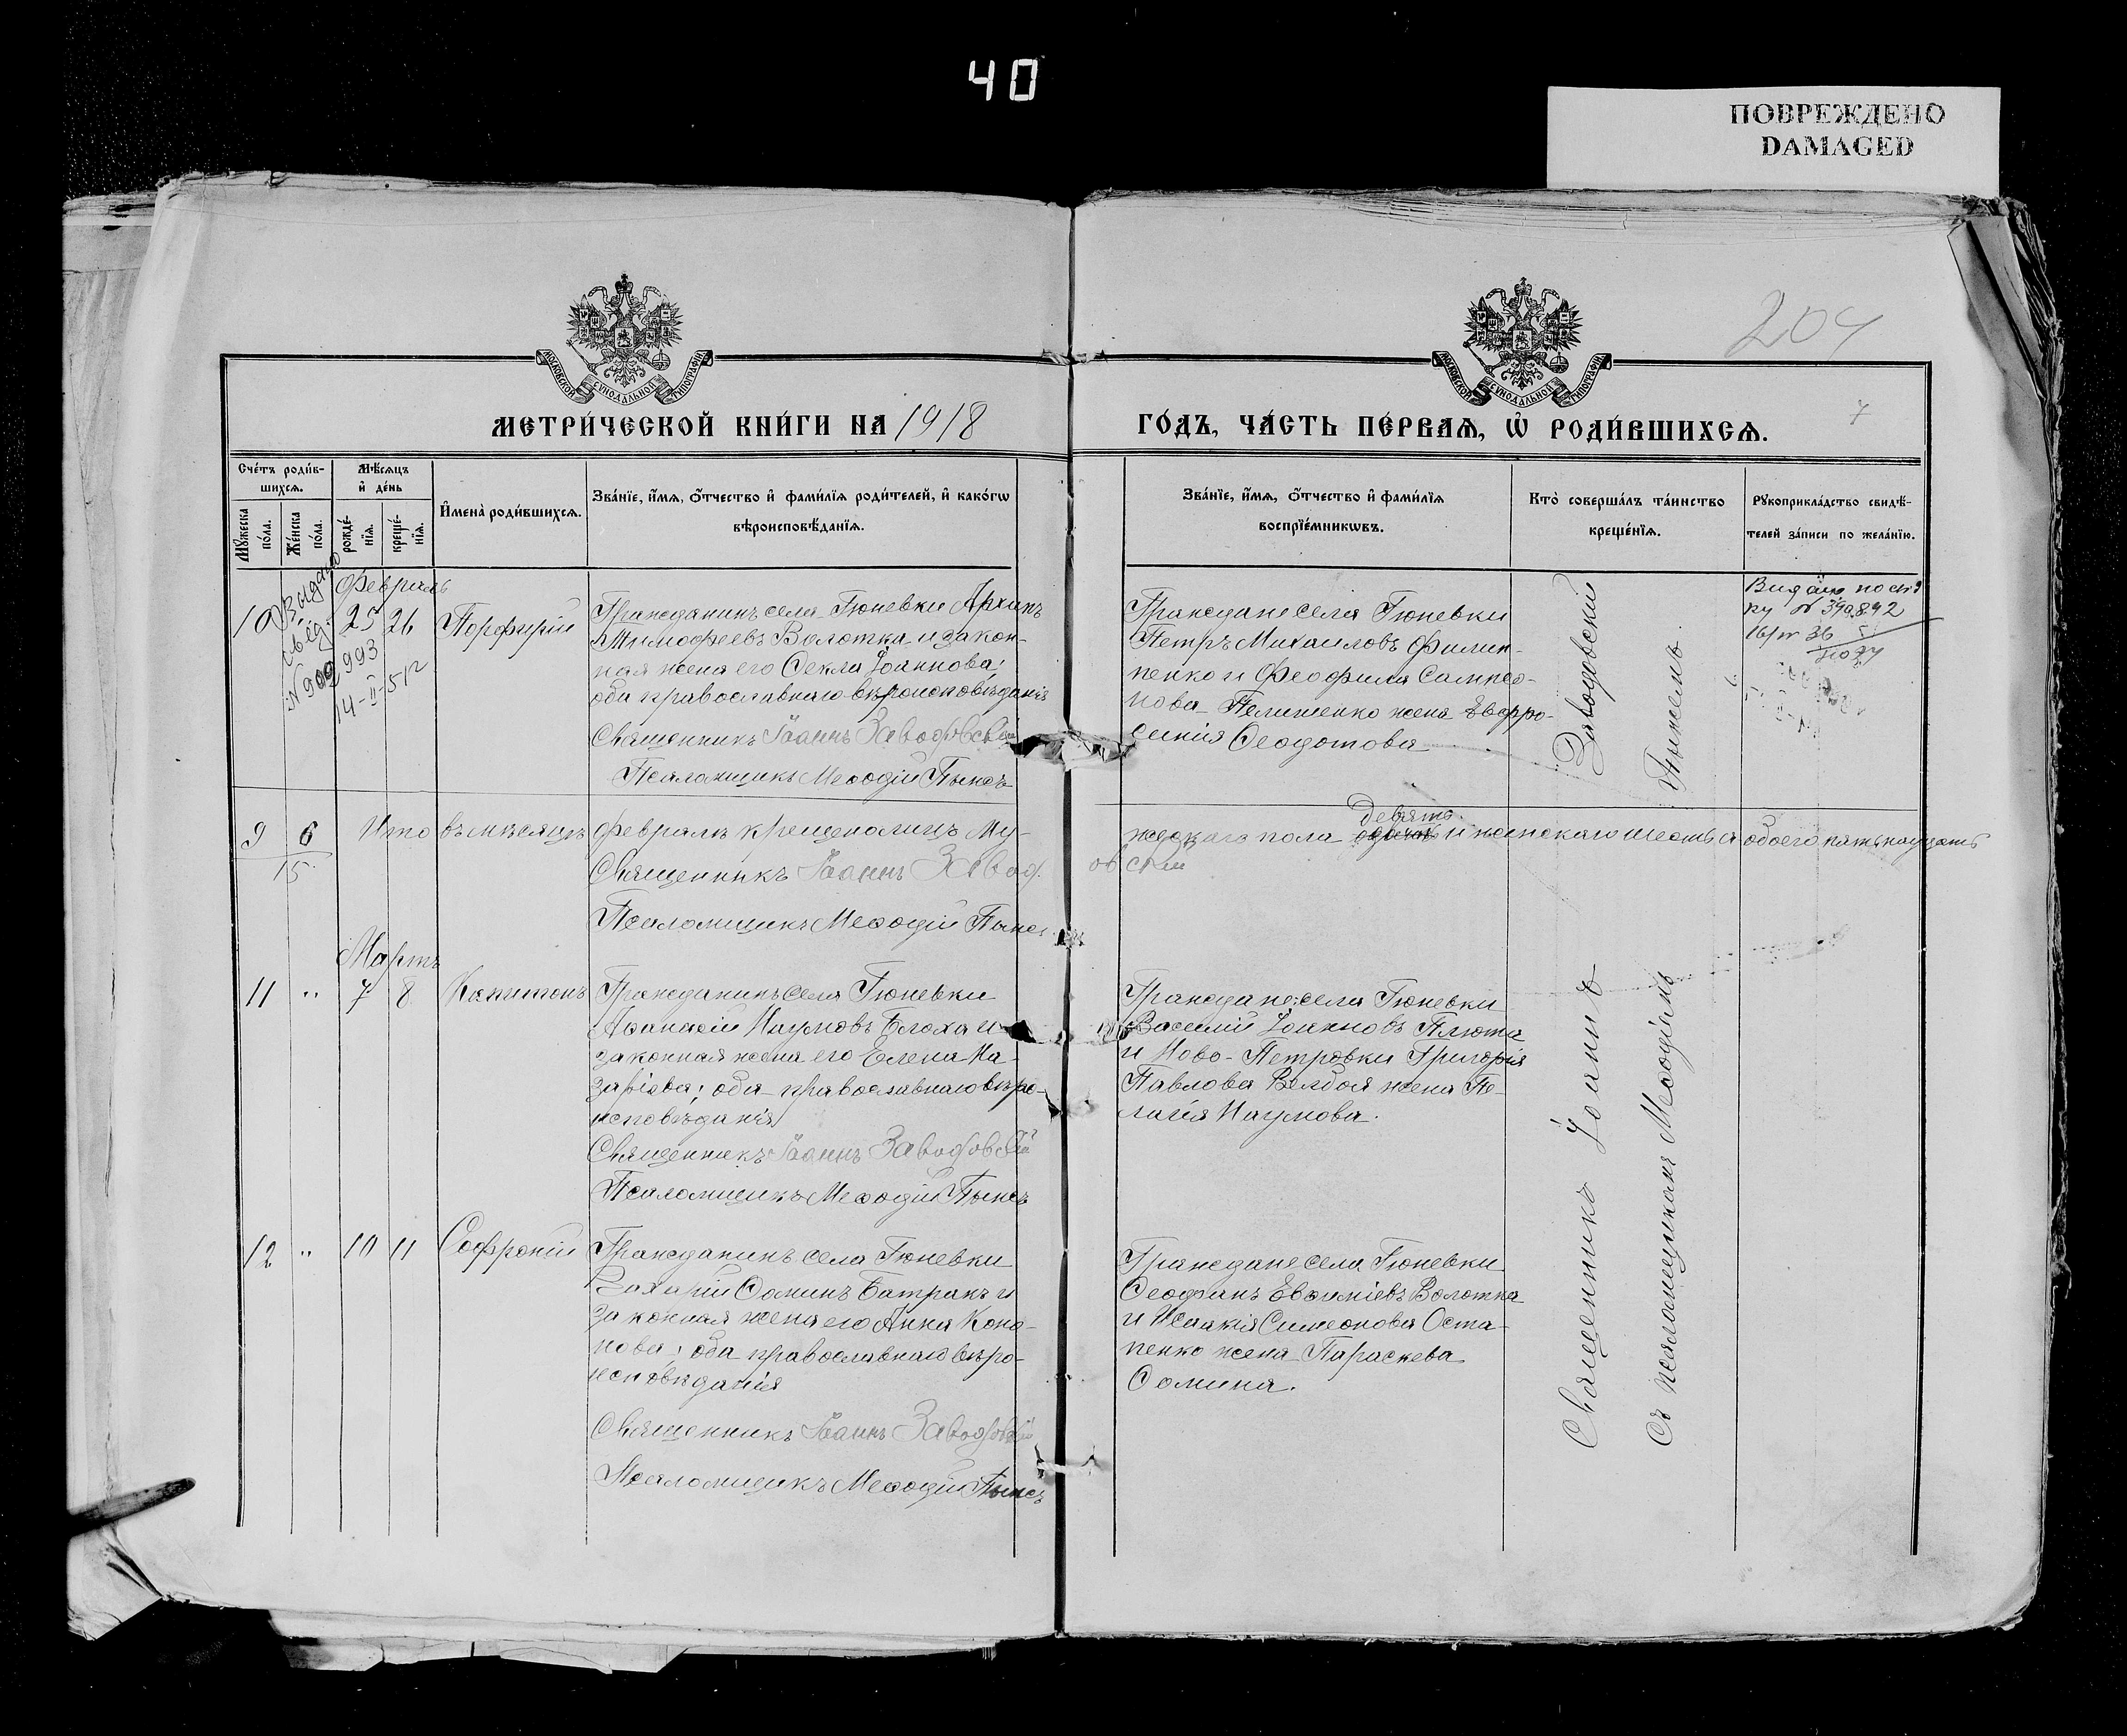 40
ПОВРЕЖДЕНО
DAMAGED
204
7
МОСКОВСКОЙ СѴНОДАЛЬНОЙ ТИПОГРАФІИ
МОСКОВСКОЙ СѴНОДАЛЬНОЙ ТИПОГРАФІИ
МЕТРИ́ЧЕСКОЙ КНИ́ГИ НА 1918
ГО́ДЪ, ЧА́СТЬ ПЕ́РВАѦ, Ѡ҆ РОДИ́ВШИХСѦ.
Сче́тъ роди́в-
шихсѧ.
Мꙋжеска
по́ла.
Же́нска
по́ла.
Мѣ́сѧцъ
и҆ де́нь
рожде́-
нїѧ.
креще́-
нїѧ.
И҆мена̀ роди́вшихсѧ.
Зва́нїе, и҆́мѧ, ѻ҆́тчество и҆ фами́лїѧ роди́телей, и҆ како́гѡ
вѣроисповѣ́данїѧ.
Зва́нїе, и҆́мѧ, ѻ҆́тчество и҆ фами́лїѧ
воспрїе́мникѡвъ.
Кто̀ соверша́лъ та́инство
креще́нїѧ.
Рꙋкоприкла́дство свидѣ́-
телей за́писи по жела́нїю.
Февраль
10 25 26 Порфирій
Гражданинъ села Гюневки Архипъ
Тимофеевъ Волотка и закон-
ная жена его Ѳекла Іоаннова;
оба православнаго вѣроисповѣданія
Священникъ Іоаннъ Заводовскій
Псаломщикъ Меѳодій Пынзъ
Граждане села Гюневки
Петръ Михаиловъ Филип-
пенко и Феофила Сампсо-
нова Пелишенко жена Евфро-
синія Ѳеодотова
9 6
15
Итого въ мѣсяцѣ февралѣ крещено лицъ му-
жескаго пола девять и женскаго шесть а обоего пятьнадцать
Священникъ Іоаннъ Заводовскій
Псаломщикъ Меѳодій Пынзъ
Мартъ
11 " 7 8 Капитонъ
Гражданинъ села Гюневки
Аѳанасій Наумовъ Блоха и
законная жена его Елена На-
заріева; оба православнаго вѣро-
исповѣданія
Священникъ Іоаннъ Заводовскій
Псаломщикъ Меѳодій Пынзъ
Граждане: села Гюневки
Василій Іоанновъ Плюта
и Ново-Петровки Григорія
Павлова жена Пе-
лагія Наумова.
12 " 10 11 Софроній
Гражданинъ села Гюневки
Захарій Ѳоминъ Батракъ и
законная жена его Анна Коно-
нова; оба православнаго вѣро-
исповѣданія
Священникъ Іоаннъ Заводовскій
Псаломщикъ Меѳодій Пынзъ
Граждане села Гюневки
Ѳеофанъ Евѳиміевъ Волотка
и Исаакія Симеонова Оста-
пенко жена Параскева
Ѳомина.
Священникъ Іоаннъ Заводовскій
Съ псаломщикомъ Меѳодіемъ